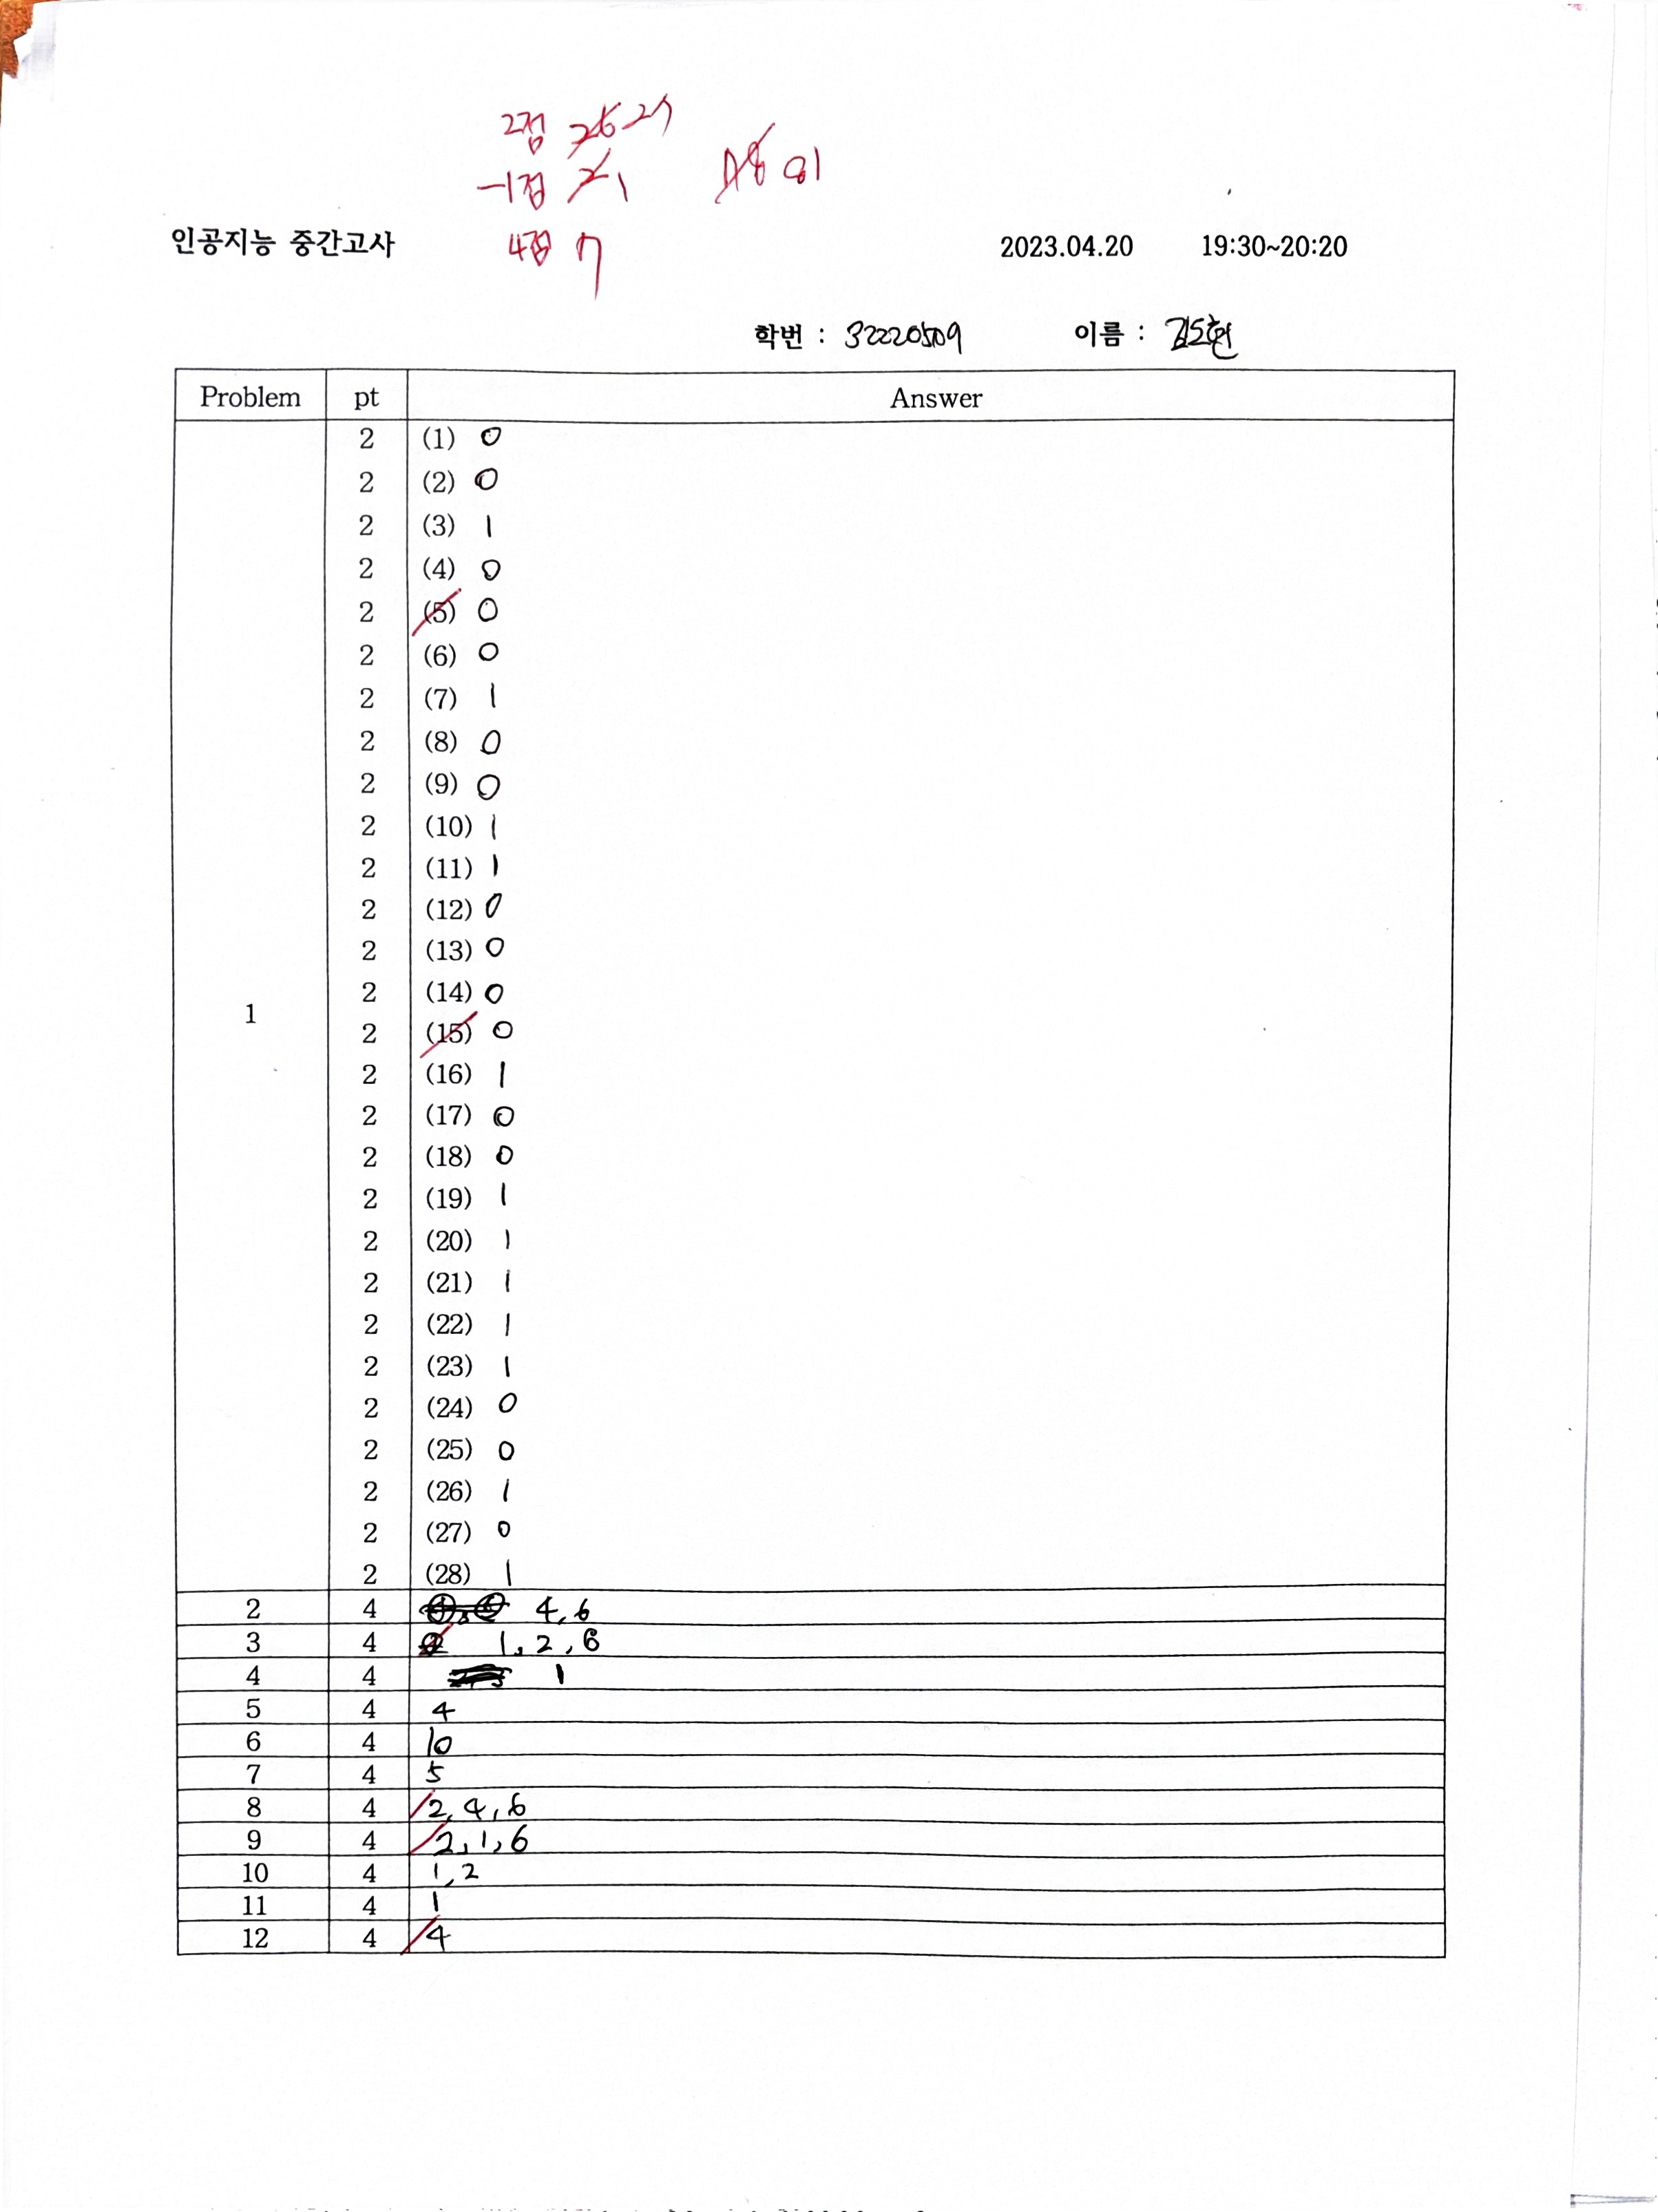 2점 26 27
-1점 2 1 78 81
인공지능 중간고사 4점 7 2023.04.20 19:30~20:20
학번 : 32220509 이름 : 김도현
Problem pt Answer
2 (1) 0
2 (2) 0
2 (3) 1
2 (4) 0
2 (5) 0
2 (6) 0
2 (7) 1
2 (8) 0
2 (9) 0
2 (10) 1
2 (11) 1
2 (12) 0
2 (13) 0
2 (14) 0
1
2 (15) 0
2 (16) 1
2 (17) 0
2 (18) 0
2 (19) 1
2 (20) 1
2 (21) 1
2 (22) 1
2 (23) 1
2 (24) 0
2 (25) 0
2 (26) 1
2 (27) 0
2 (28) 1
2 4 4, 6
3 4 1, 2, 6
4 4 1
5 4 4
6 4 10
7 4 5
8 4 2, 4, 6
9 4 2, 1, 6
10 4 1, 2
11 4 1
12 4 4